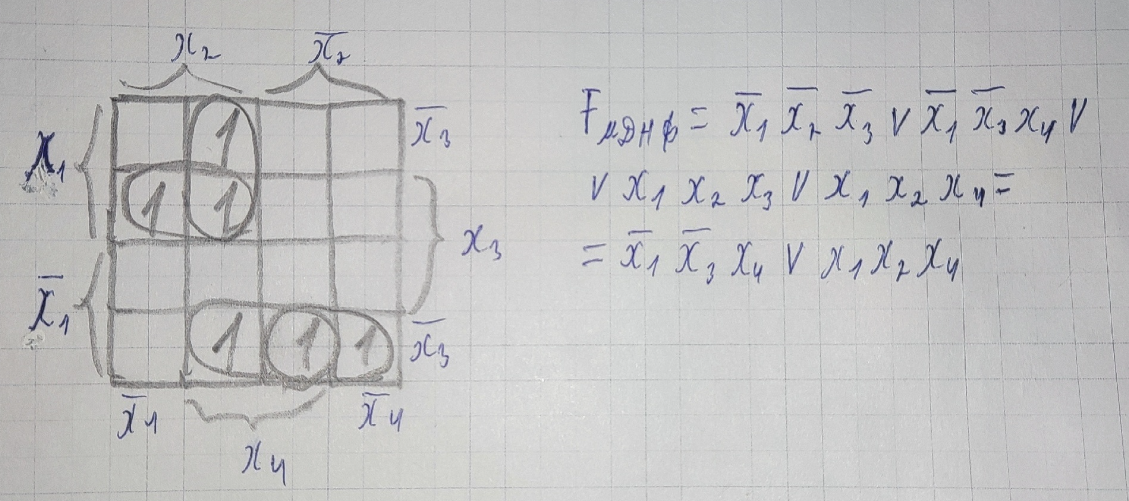 x₂ x̅₂
x₁ 1 x̅₃
1 1 x₃
x̅₁
1 1 1 x̅₃
x̅₁ x̅₄
x₄
F мднф = x̅₁ x̅₂ x̅₃ ∨ x̅₁ x̅₃ x₄ ∨
∨ x₁ x₂ x₃ ∨ x₁ x₂ x₄ =
= x̅₁ x̅₃ x₄ ∨ x₁ x₂ x₄